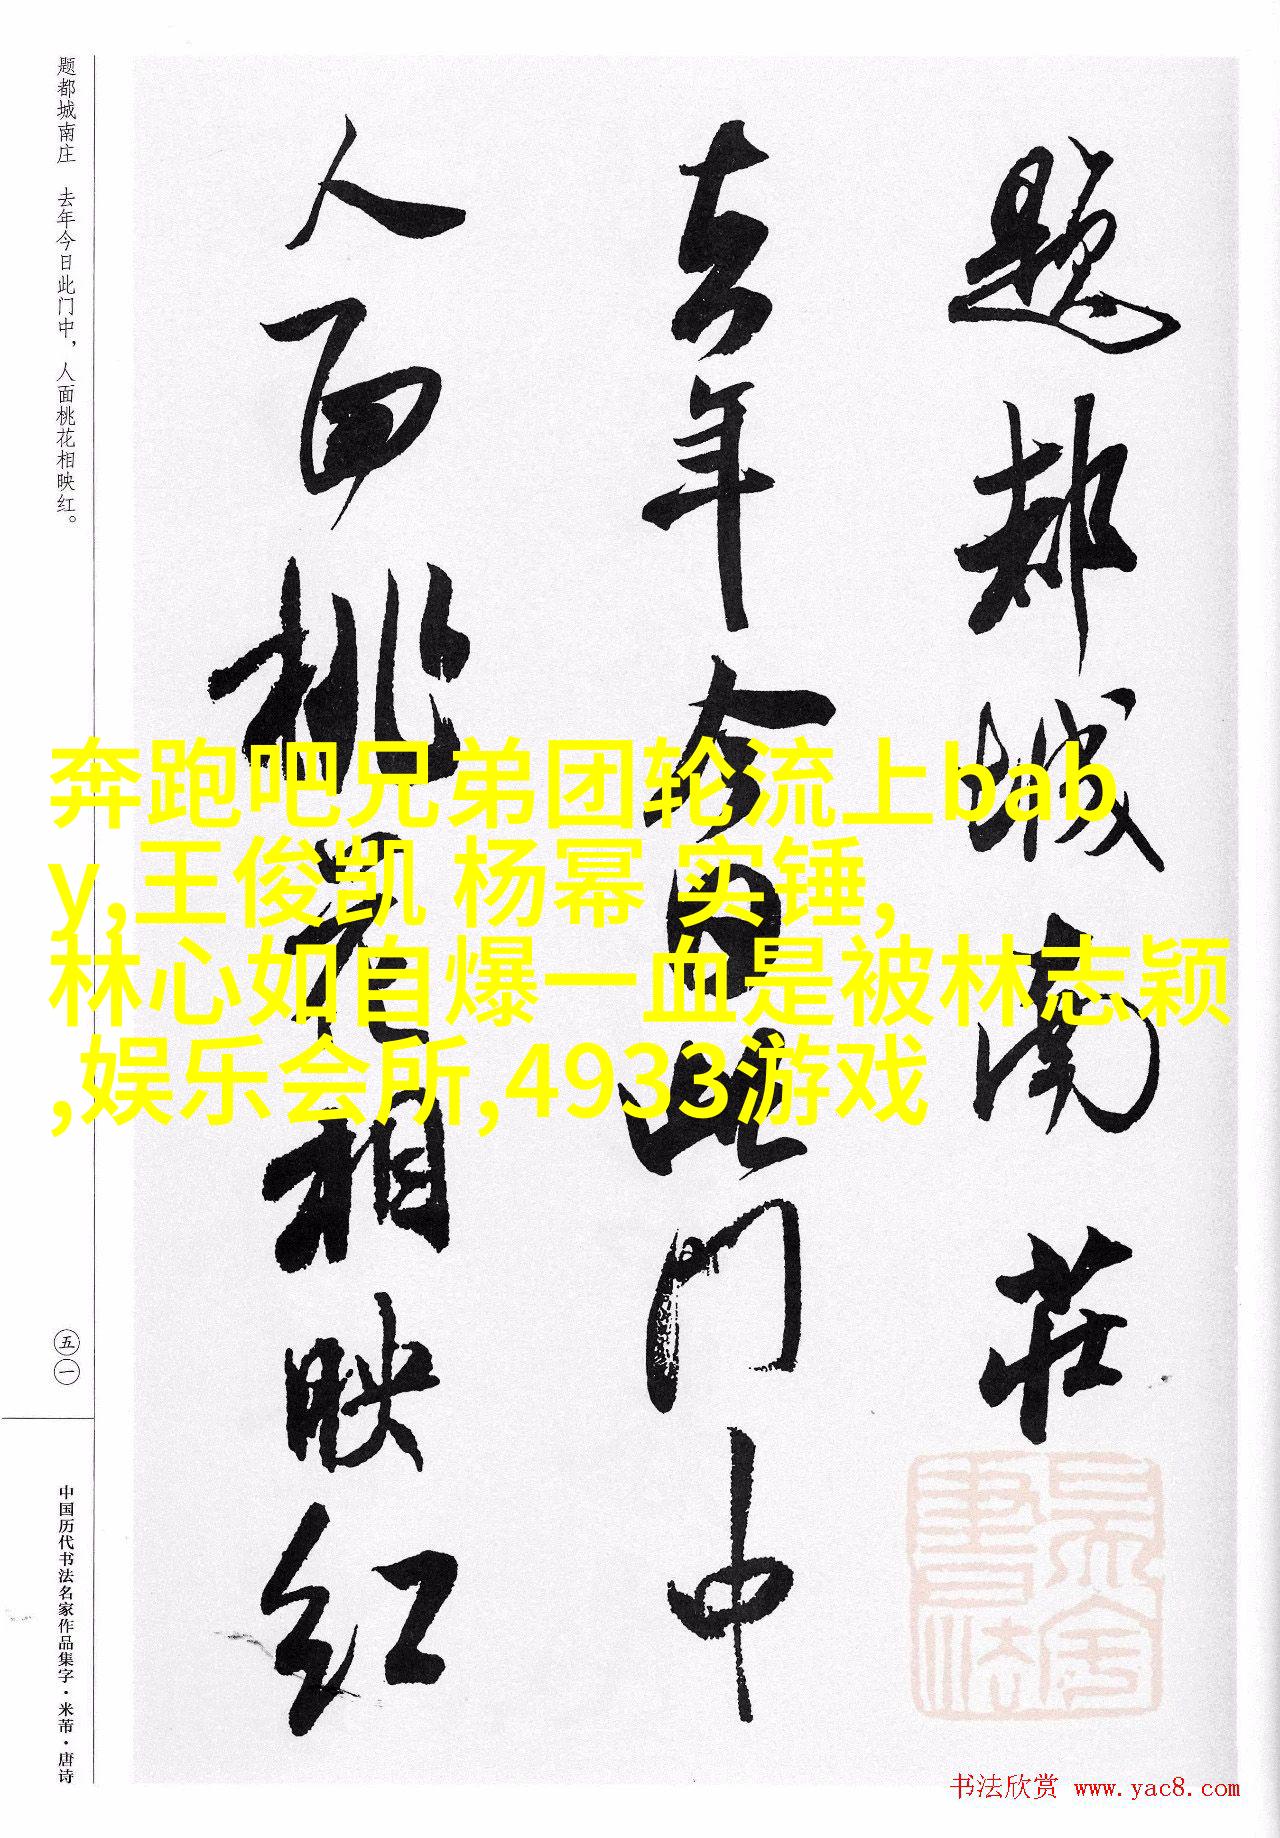 题都城南庄　去年今日此门中，人面桃花相映红。
題都城南莊
去年今日此门中
人面桃花相映红
奔跑吧兄弟团轮流上bab
y,王俊凯 杨幂 实锤,
林心如自爆一血是被林志颖
,娱乐会所,4933游戏
五一
中国历代书法名家作品集字·米芾·唐诗
书法欣赏 www.yac8.com